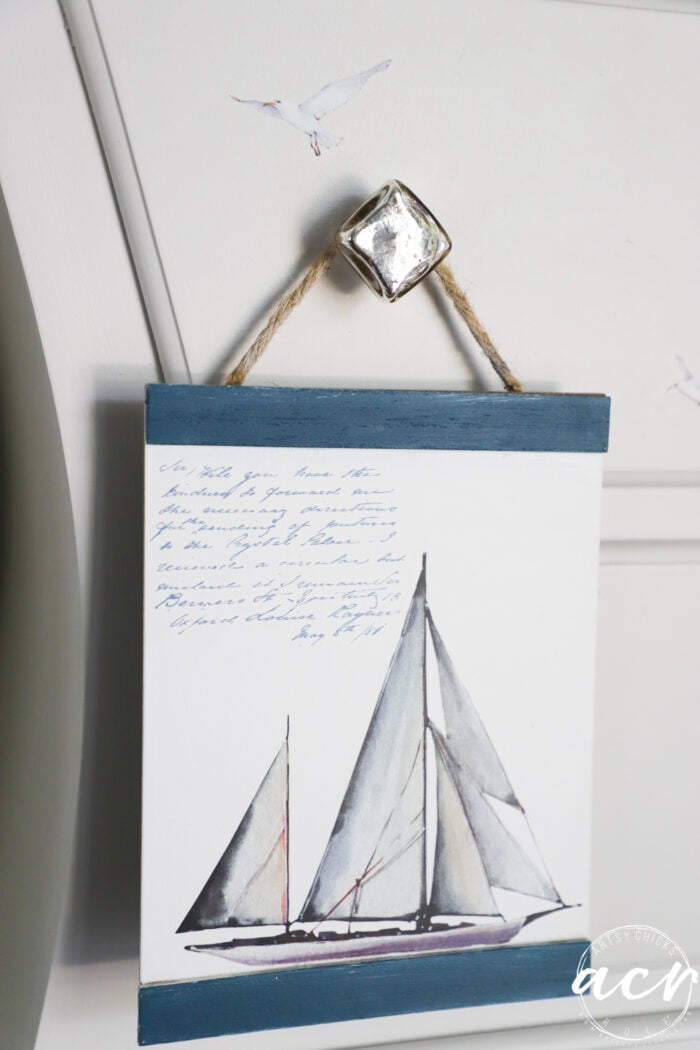 Sir, Will you have the
kindness to forward me
the necessary directions
for the sending of pictures
to the Crystal Palace. I
received a circular but
it I remain Sir
Berners St
Oxford Louise Rayner
May 8th /58
ARTSY CHICKS
acr
RULE